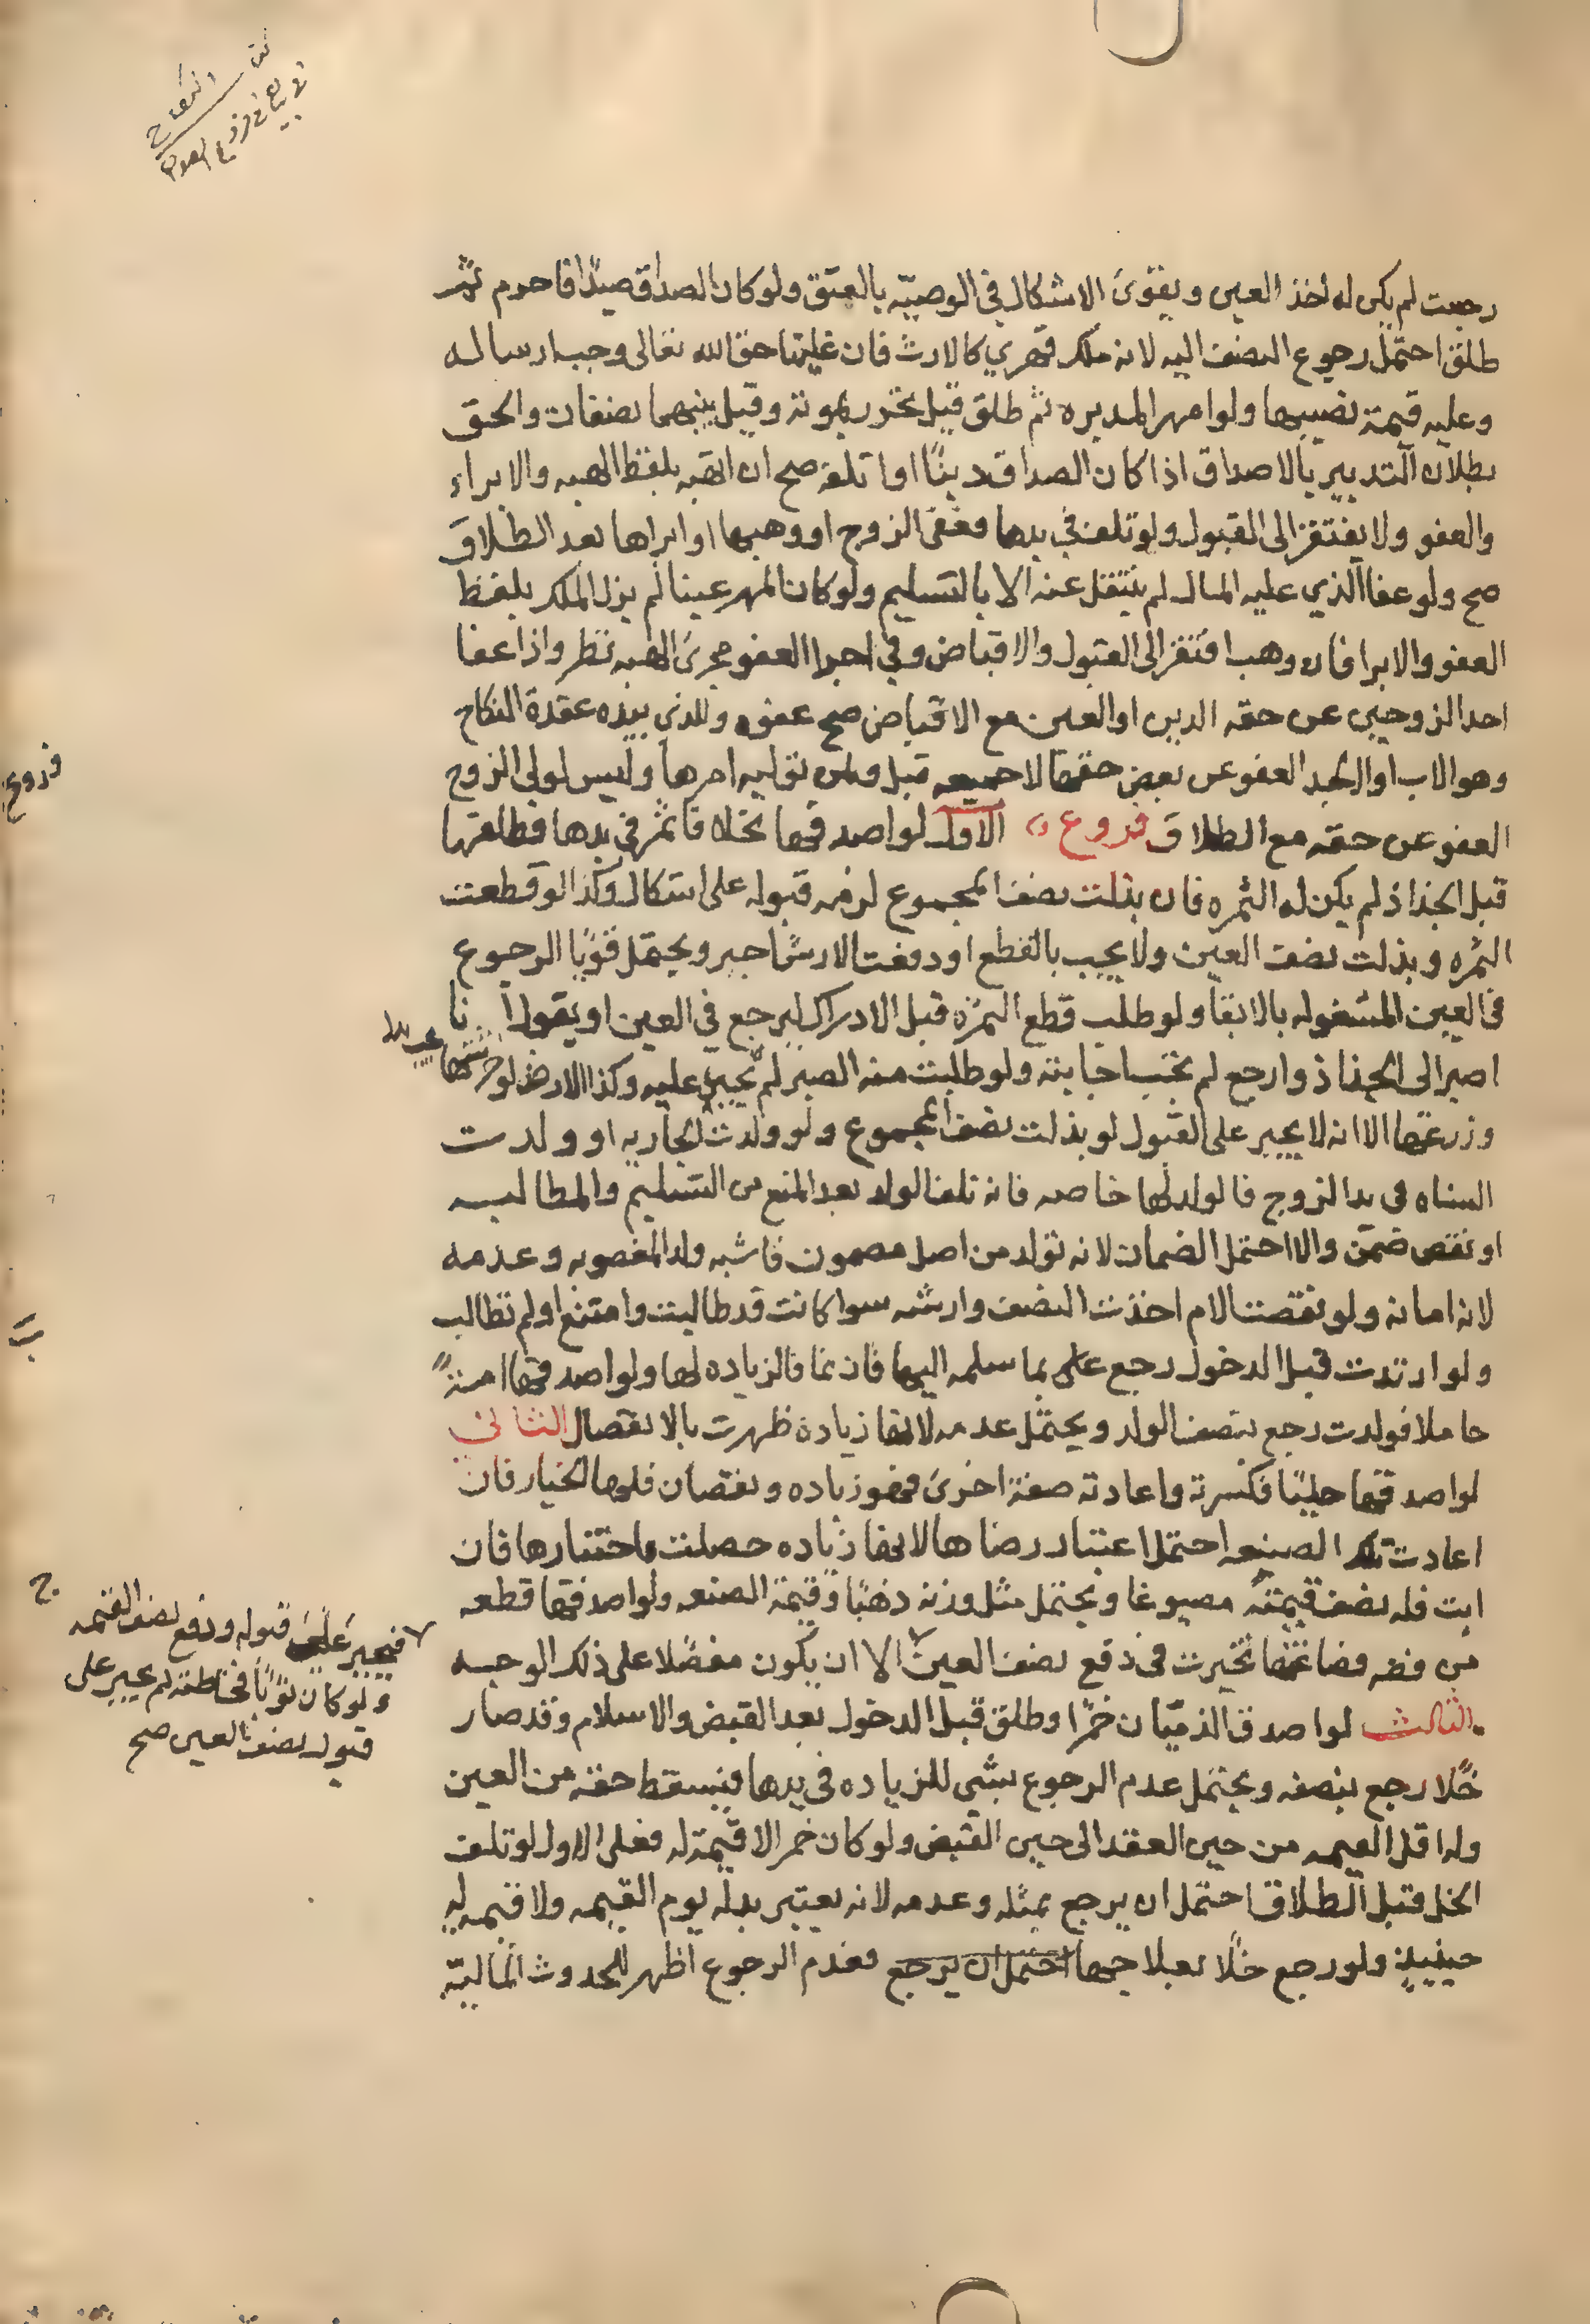 رجعت لم يكن له اخذ العين ويقوى الاشكال في الوصيّه بالعتق ولو كان الصداق صيدًا فاحرم ثم
طلق احتمل رجوع النصف اليه لانه ملك قهري كالارث فان غلبنا حق الله تعالى وجب ارساله
وعليه قيمة نصيبها ولو امهر المدبره ثم طلق قيل يتحرر بموته وقيل بينهما نصفان والحق
بطلان التدبير بالاصداق اذا كان الصداق دينًا او اتلفه صح ان تهبه بلفظ الهبه والابراء
والعفو ولا يفتقر الى القبول ولو تلف في يدها فعفى الزوج او وهبها او ابراها بعد الطلاق
صح ولو عفا الذي عليه المال لم ينتقل عنه الا بالتسليم ولو كان المهر عينا لم يزل الملك بلفظ
العفو والابرا فان وهب افتقر الى القبول والاقباض وفي اجرا العفو مجرى الهبه نظر واذا عفا
احد الزوجين عن حقه الدين او العين مع الاقباض صح عفوه وللذي بيده عقدة النكاح
وهو الاب او الجد العفو عن بعض حقها لا جميعه قيل ولمن توليه امرها وليس لولي الزوج
العفو عن حقه مع الطلاق فروع الاول لو اصدقها نخلا فاثمر في يدها فطلقها
قبل الجذاذ لم يكن له الثمره فان بذلت نصف المجموع لزمه قبوله على اشكال وكذا لو قطعت
الثمره وبذلت نصف العين ولا يجب بالقطع او دفعت الارش اجبر ويحتمل قويًا الرجوع
في العين المشغوله بالابقا ولو طلب قطع الثمرة قبل الادراك ليرجع في العين او يقول انا
اصبر الى الجذاذ وارجع لم تجب اجابته ولو طلبت منه الصبر لم يجبر عليه وكذا الارض لو حرثتها
وزرعتها الا انه لا يجبر على القبول لو بذلت نصف المجموع ولو ولدت الجاريه او ولدت
الشاه في يد الزوج فالولد لها خاصه فان تلف الولد بعد المنع من التسليم والمطالبه
او نقص ضمن والا احتمل الضمان لانه تولد من اصل مضمون فاشبه ولد المغصوبه وعدمه
لانه امانه ولو نقصت الام اخذت النصف وارشه سوا كانت قد طالبت وامتنع او لم تطالب
ولو ارتدت قبل الدخول رجع عليها بما سلمه اليها فان نما فالزياده لها ولو اصدقها امةً
حاملا فولدت رجع بنصف الولد ويحتمل عدمه لانها زيادة ظهرت بالانفصال الثاني
لو اصدقها حليًا فكسرته واعادته صفة اخرى فهو زياده ونقصان فلها الخيار فان
اعادت تلك الصنعه احتمل اعتبار رضاها لانها زياده حصلت باختيارها فان
ابت فله نصف قيمته مصوغا ويحتمل مثل وزنه ذهبًا وقيمة الصنعه ولو اصدقها قطعه
من فضه فصاغتها تخيرت في دفع نصف العين الا ان يكون مفضلا على ذلك الوجه
الثالث لو اصدق الذميّان خمرًا وطلق قبل الدخول بعد القبض والاسلام وقد صار
خلًا رجع بنصفه ويحتمل عدم الرجوع بشي للزياده في يدها فيسقط حقه من العين
وله اقل القيمه من حين العقد الى حين القبض ولو كان خمر الا قيمة له فعلى الاول لو تلف
الخل قبل الطلاق احتمل ان يرجع بمثله وعدمه لانه يعتبر بدله يوم القيمه ولا قيمه له
حينيذٍ ولو رجع خلًا بعلاجها احتمل ان يرجع فعدم الرجوع اظهر لحدوث الماليّه
فيجبر على قبوله ودفع نصف القيمه
ولو كان ثوبًا فخاطته لم يجبر على
قبول نصف العين صح
فروع